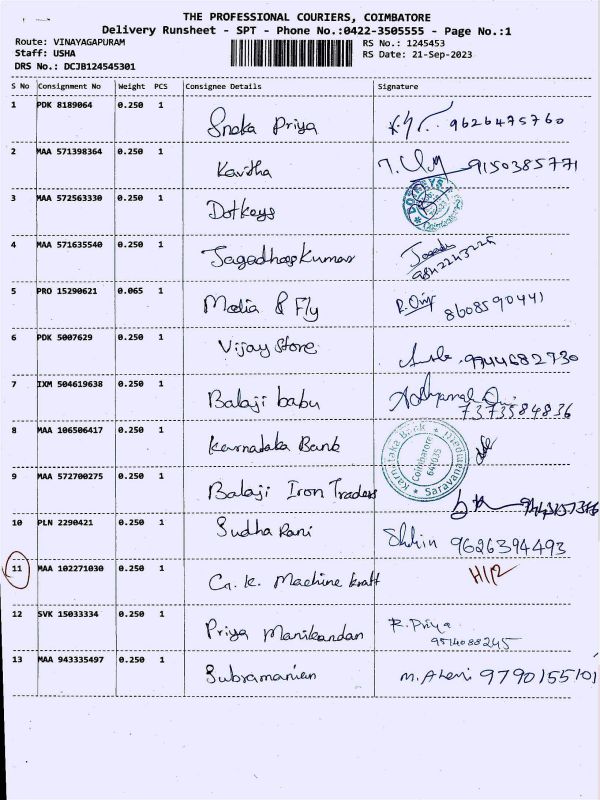 THE PROFESSIONAL COURIERS, COIMBATORE
Delivery Runsheet - SPT - Phone No.:0422-3505555 - Page No.:1
Route: VINAYAGAPURAM RS No.: 1245453
Staff: USHA RS Date: 21-Sep-2023
DRS No.: DCJB124545301
S No Consignment No Weight PCS Consignee Details Signature
1 PDK 8189064 0.250 1 Sneka Priya 9626475760
2 MAA 571398364 0.250 1 Kavitha 9150385771
3 MAA 572563330 0.250 1 Dotkeys
4 MAA 571635540 0.250 1 Jagadheeskumar 9842243225
5 PRO 15290621 0.065 1 Media & Fly 8608590441
6 PDK 5007629 0.250 1 Vijay Store 9944682730
7 IXM 504619638 0.250 1 Balaji babu 7373584836
8 MAA 106506417 0.250 1 Karnataka Bank
Karnataka Bank * Saravanam
Coimbatore
641035
9 MAA 572700275 0.250 1 Balaji Iron Traders
10 PLN 2290421 0.250 1 Sudha Rani 9626394493
11 MAA 102271030 0.250 1 G. K. Machine kraft
12 SVK 15033334 0.250 1 Priya Manikandan R. Priya
9514088245
13 MAA 943335497 0.250 1 Subramanian 9790155101